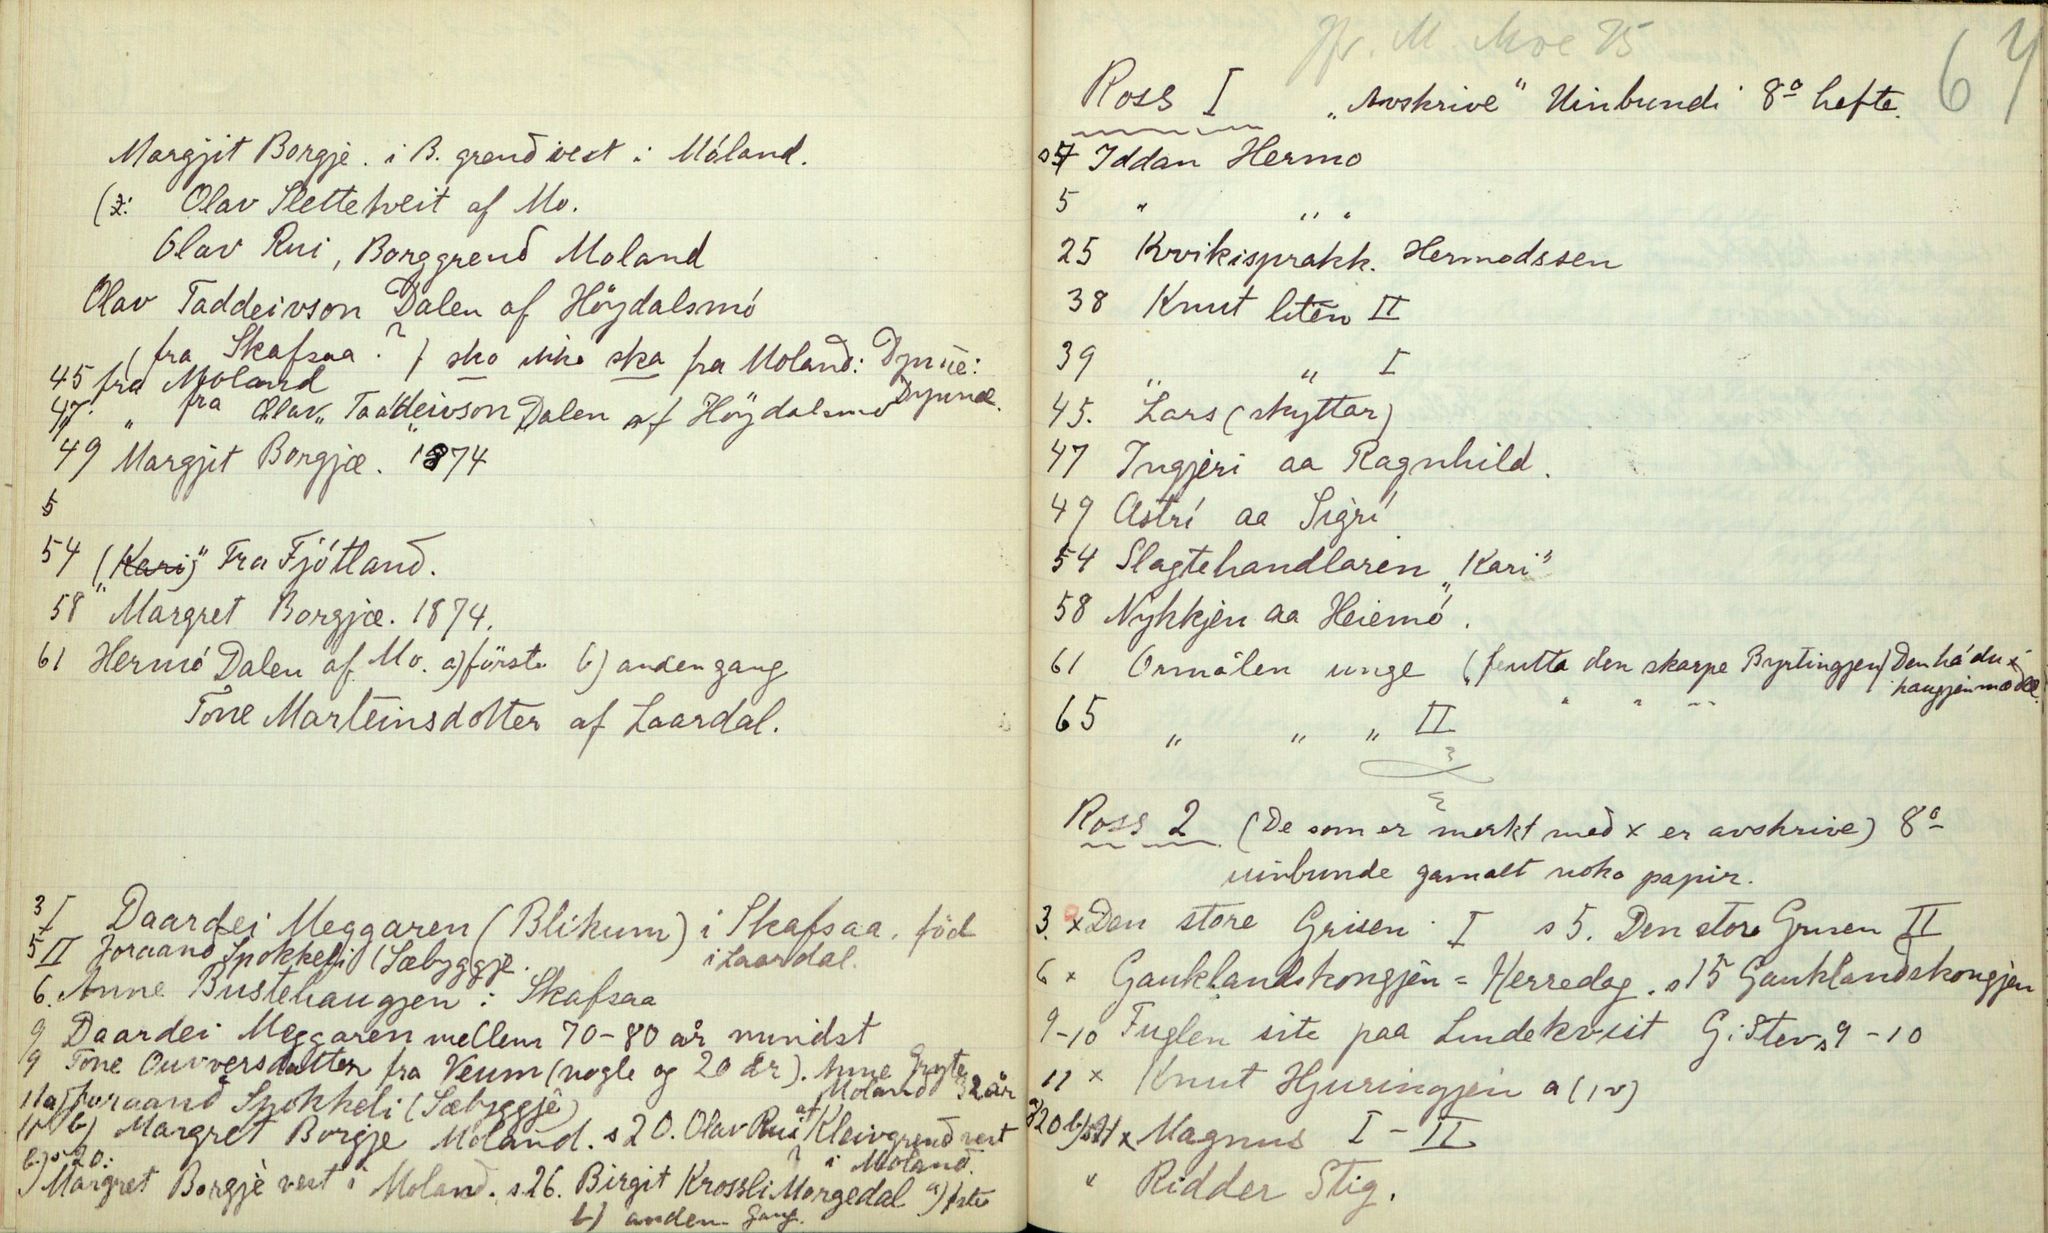 Margjit Borgje. i B. grenð vest i Móland.
(ɔ: Olav Slettehveit af Mo.
Olav Rui, Borggrenð Moland
Olav Taddeivson Dalen af Höydalsmó
(fra Skafsaa?) sko ikke ska fra Molanð: Dynne:
Dynnæ.
45 fra Moland
47. " fra Olav Taddeivson Dalen af Höydalsmo
49 Margjit Borgjæ. 1874
5
54 („Kari") Fra Fjótlanð.
58 Margret Borgjæ. 1874.
61 Hermó Dalen af Mo. a) förste b) anden gang
Tone Marteinsdotter af Laardal.
3 I Daardei Meggaren (Blikum) i Skafsaa. föd
i Laardal.
5 II Joraanð Spokkeli (Sæbyggje.
6. Anne Bustehaugjen i Skafsaa
9 Daardei Meggaren mellem 70-80 aar mindst
9 Tone Ouvversdatter fra Veum (nogle og 20 år). Anne Gryte
Molanð 32 år
11 a) Joraanð Spokkeli (Sæbyggje)
b) Margret Borgje Moland. s 20. Olav Rui af Kleivgrenð vest
i Molanð.
b) s 20:
Margret Borgjè vest i Molanð. s. 26. Birgit Krossli Morgedal a) fste
b) anden gang.
Jfr. M. Moe 75
64
Ross I „Avskrive" Uinbundi 8º hefte.
s 7 Iddan Hermo
5 " " "
25 Kvikisprakk. Hermodssen
38 Knut liten II
39 " " I
45. Lars (skyttar)
47 Ingjeri aa Ragnhild.
49 Astrí aa Sigrí
54 Slagtehandlaren „Kari"
58 Nykkjen aa Heiemó.
61 Ormålen unge (fenta den skarpe Byrtingjen) Den há du i
haugjen mædde.
65 " " " II
Ross 2 (De som er merkt með x er avskrive) 8º
uinbunde gamalt noko papir.
3. x Den store Grisen I s 5. Den store Grisen II
6 x Gauklandskongjen = Herredag. s 15 Gauklanðskongjen
9-10 Fuglen site paa Lindekvist G: Stev s 9-10
11 x Knut Hjuringjen a (1v)
a) 20 b) s 21 x Magnus I - II
" Ridder Stig.